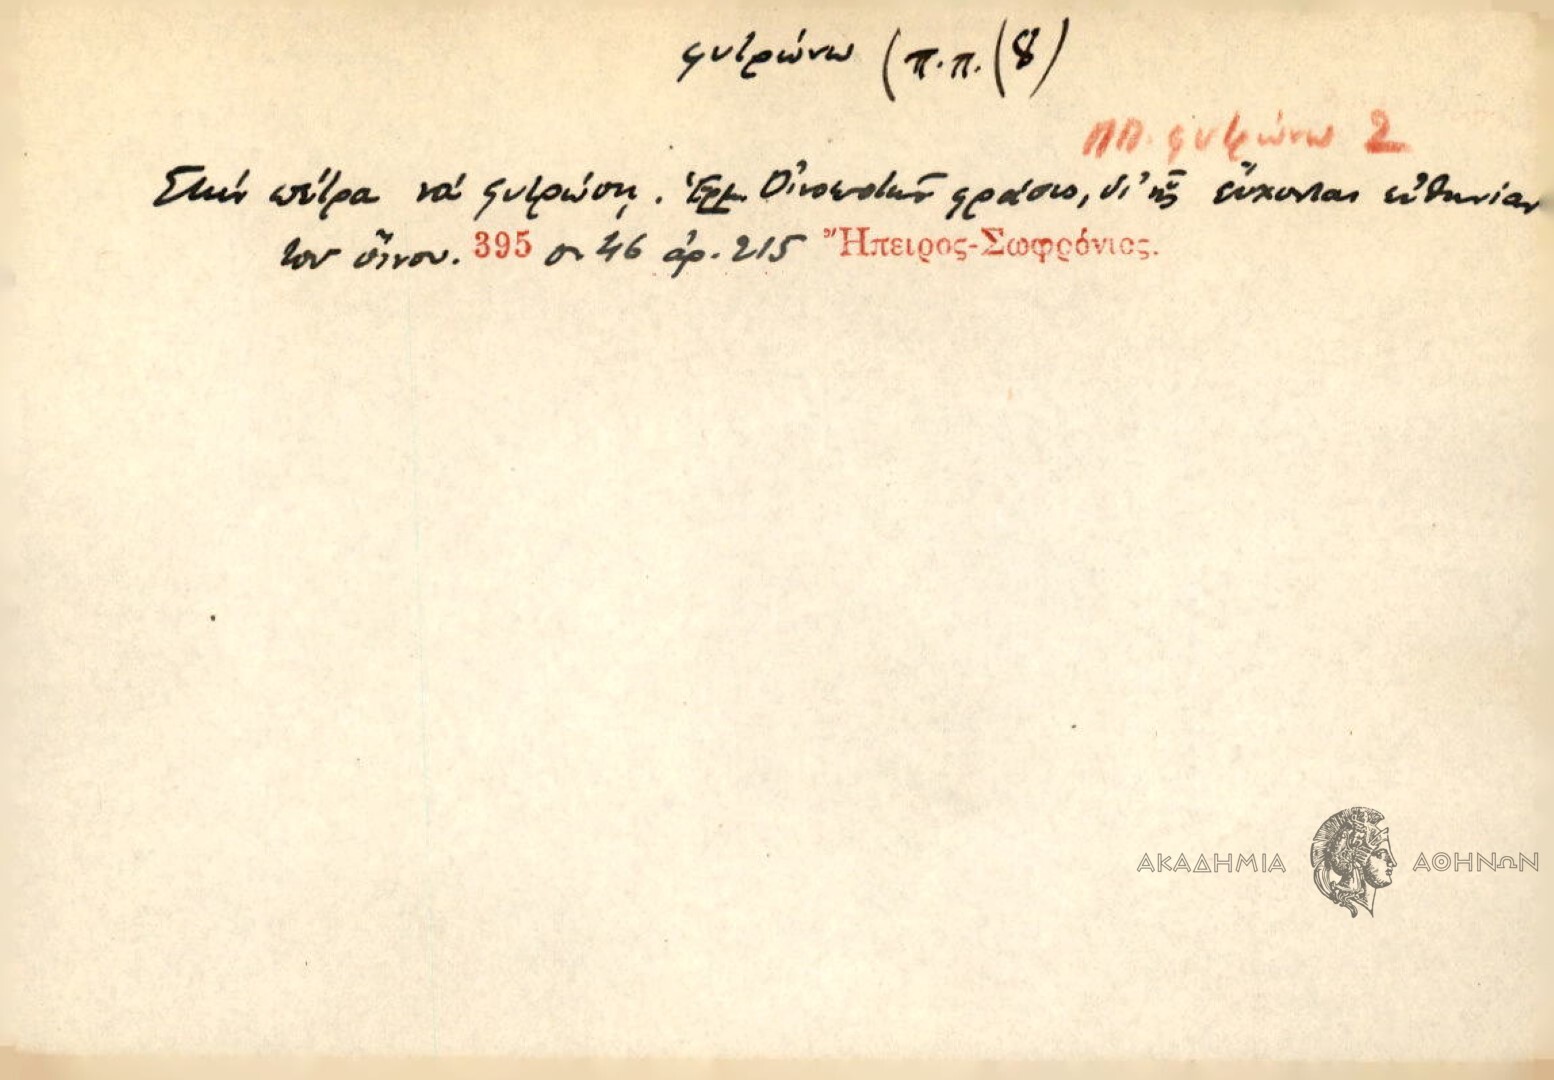 φυτρώνω (π.π. (8)
ΠΠ. φυτρώνω 2
Στήν πέτρα νά φυτρώση. Ἑρμ. Οἰνοποτῶν φράσις, δι' ἧς εὔχονται εὐθηνίαν
τοῦ οἴνου. 395 σ. 46 ἀρ. 215 Ἤπειρος-Σωφρόνιος.
ΑΚΑΔΗΜΙΑ ΑΘΗΝΩΝ